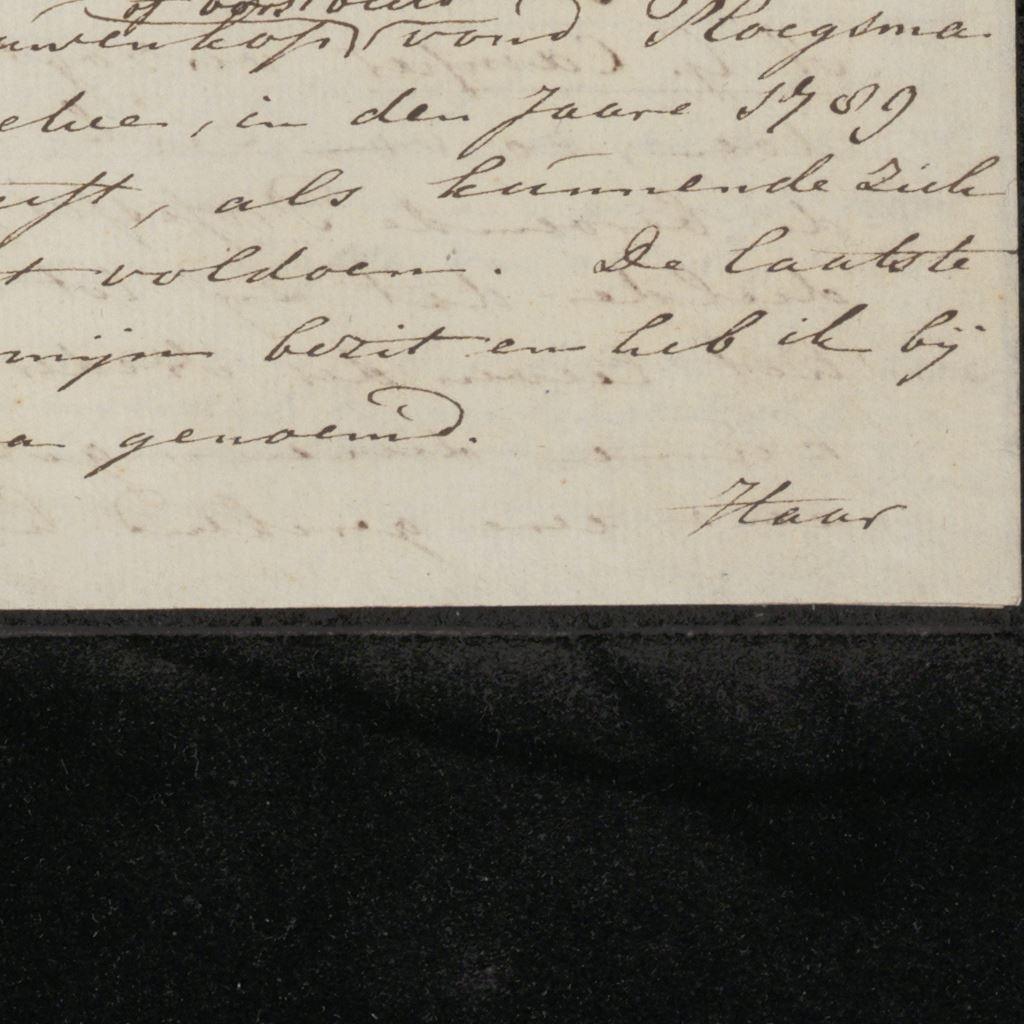 of borstbeeld
uwenkop) vond Ploegsma
elvee, in den Jaare 1789
uift, als kunnende zich
t voldoen. De laatste
mijn bezit en heb ik bij
a genoemd.
Haar